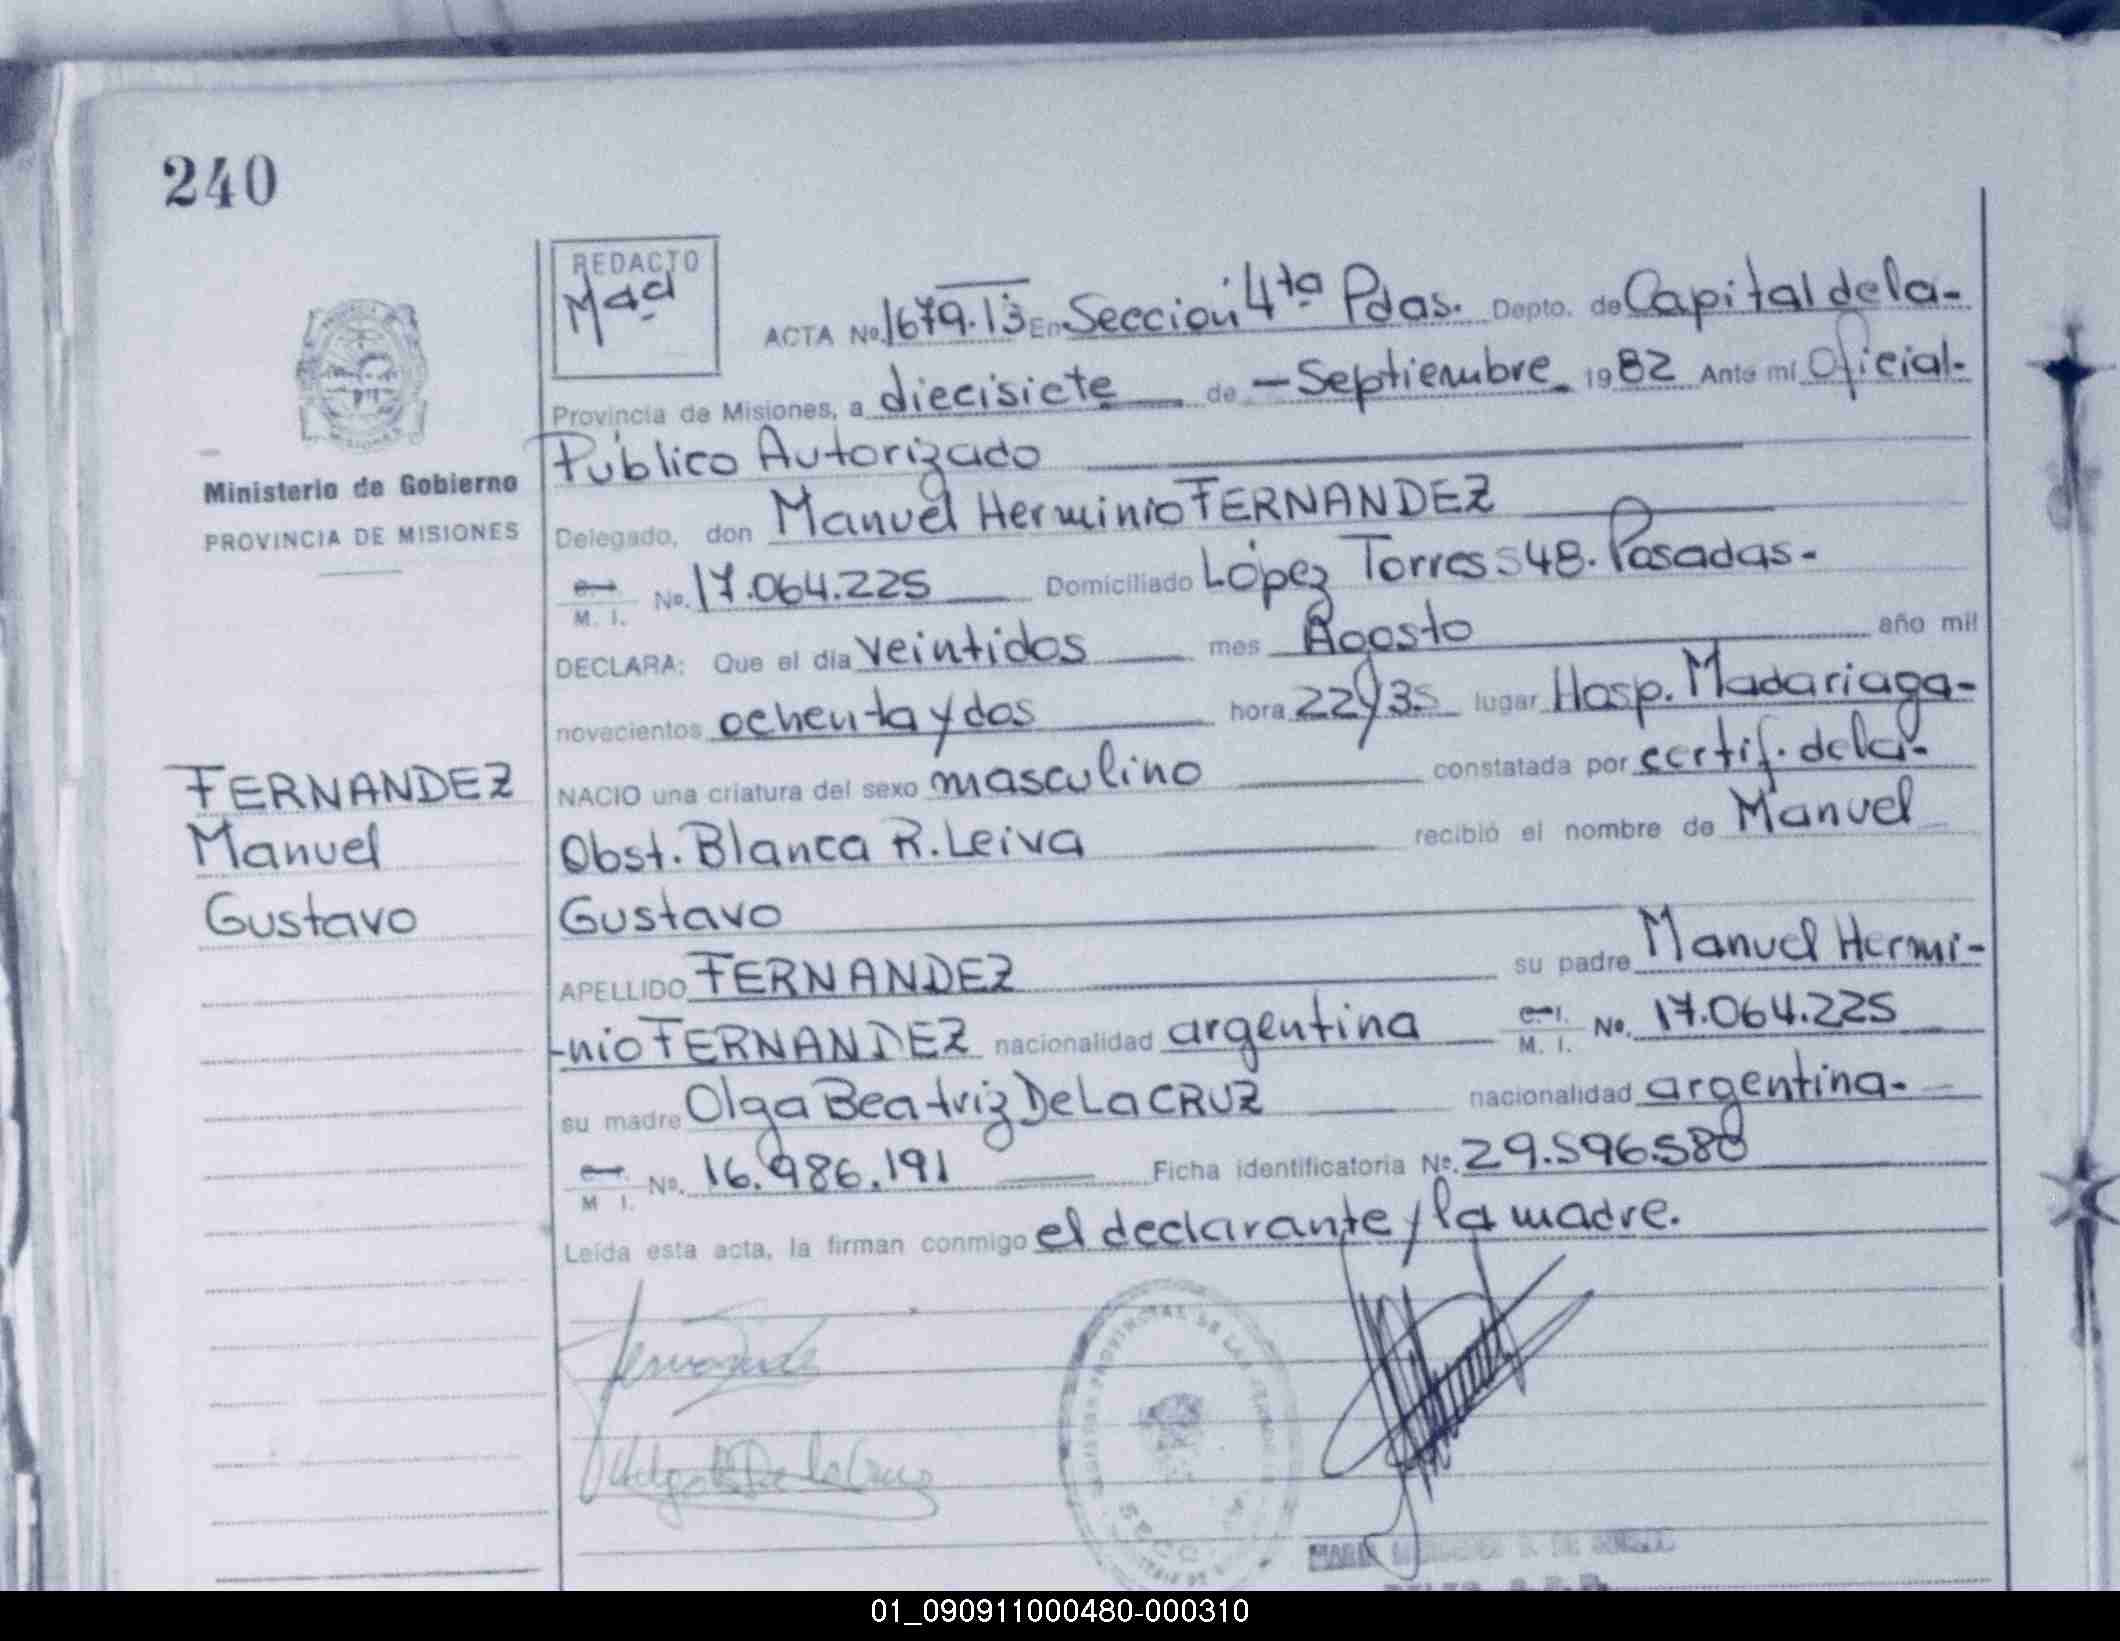 240
REDACTO
ACTA No. 1679.13 En Sección 4ta Pdas. Depto. de Capital de la-
Provincia de Misiones, a diecisiete de - Septiembre 1982 Ante mí Oficial-
Público Autorizado
Ministerio de Gobierno
PROVINCIA DE MISIONES
Delegado, don Manuel Herminio FERNANDEZ
M. I. No. 17.064.225 Domiciliado López Torres 548. Posadas-
DECLARA: Que el día veintidos mes Agosto año mil
novecientos ochenta y dos hora 22y35 lugar Hosp. Madariaga-
FERNANDEZ
Manuel
Gustavo
NACIO una criatura del sexo masculino constatada por certif. de la-
Obst. Blanca R. Leiva recibió el nombre de Manuel
Gustavo
APELLIDO FERNANDEZ su padre Manuel Hermi-
-nio FERNANDEZ nacionalidad argentina M. I. No. 17.064.225
su madre Olga Beatriz De La CRUZ nacionalidad argentina-
M I. No. 16.986.191 Ficha identificatoria No. 29.596.580
Leída esta acta, la firman conmigo el declarante y la madre.
01_090911000480-000310